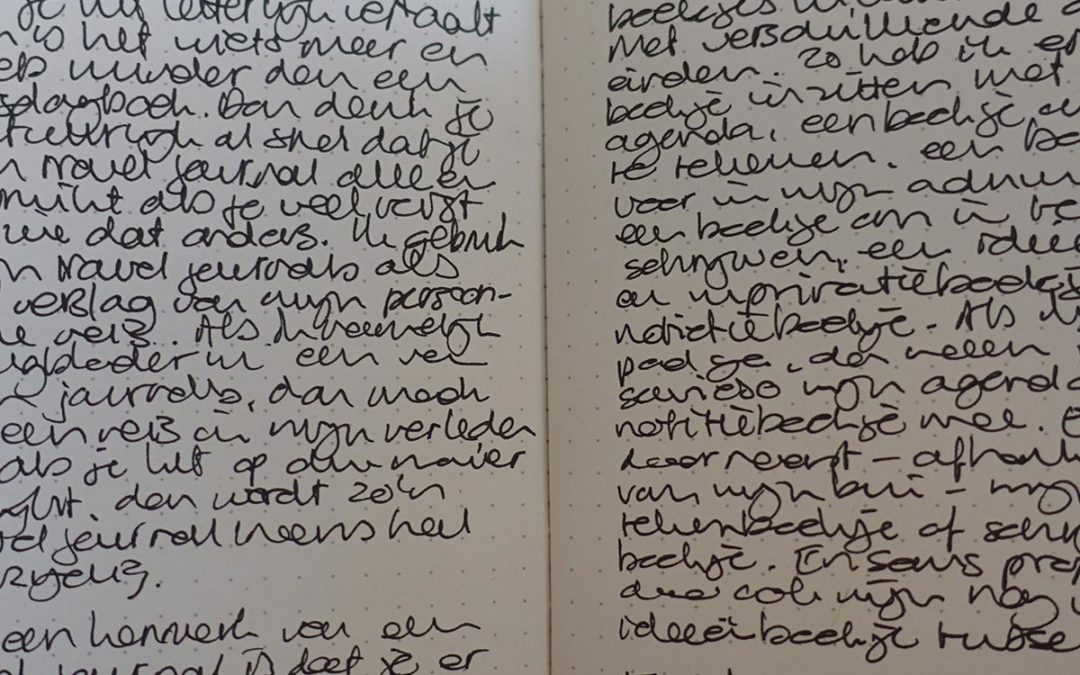 je nu letterlijk vertaalt
is het niets meer en
minder dan een
dagboek. Dan denk je
al snel dat je
travel journal alleen
als je veel reist
zie dat anders. Ik gebruik
travel journals als
verslag van mijn persoon-
reis. Als ik namelijk
in een
journals, dan maak
een reis in mijn verleden
als je het op die manier
dan wordt zo'n
journal ineens heel

een kenmerk van een
journal is dat je er
boekjes
met verschillende
einden. Zo heb ik er
boekje in zitten met
agenda, een boekje om
te tekenen. een
voor in mijn
een boekje om in te
schrijven, een ideeë
en inspiratieboekje
notitieboekje. Als ik
pad ga, dan neem
sowieso mijn agenda
notitieboekje mee. E
daarnaast - afhank
van mijn bui - mijn
tekenboekje of schr
boekje. En soms prop
daar ook mijn nog
ideeënboekje tusse